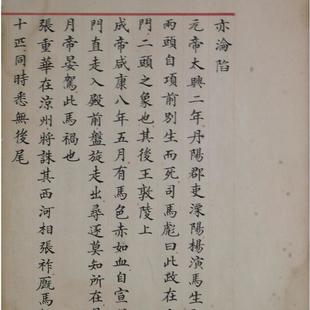 亦淪陷
元帝太興二年丹陽郡吏濮陽楊演馬生駒
兩頭自項前別生而死司馬彪曰此政在私
門二頭之象也其後王敦陵上
成帝咸康八年五月有馬色赤如血自宣陽
門直走入殿前盤旋走出尋逐莫知所在是
月帝晏駕此馬禍也
張重華在涼州將誅其西河相張祚廄馬數
十匹同時悉無後尾